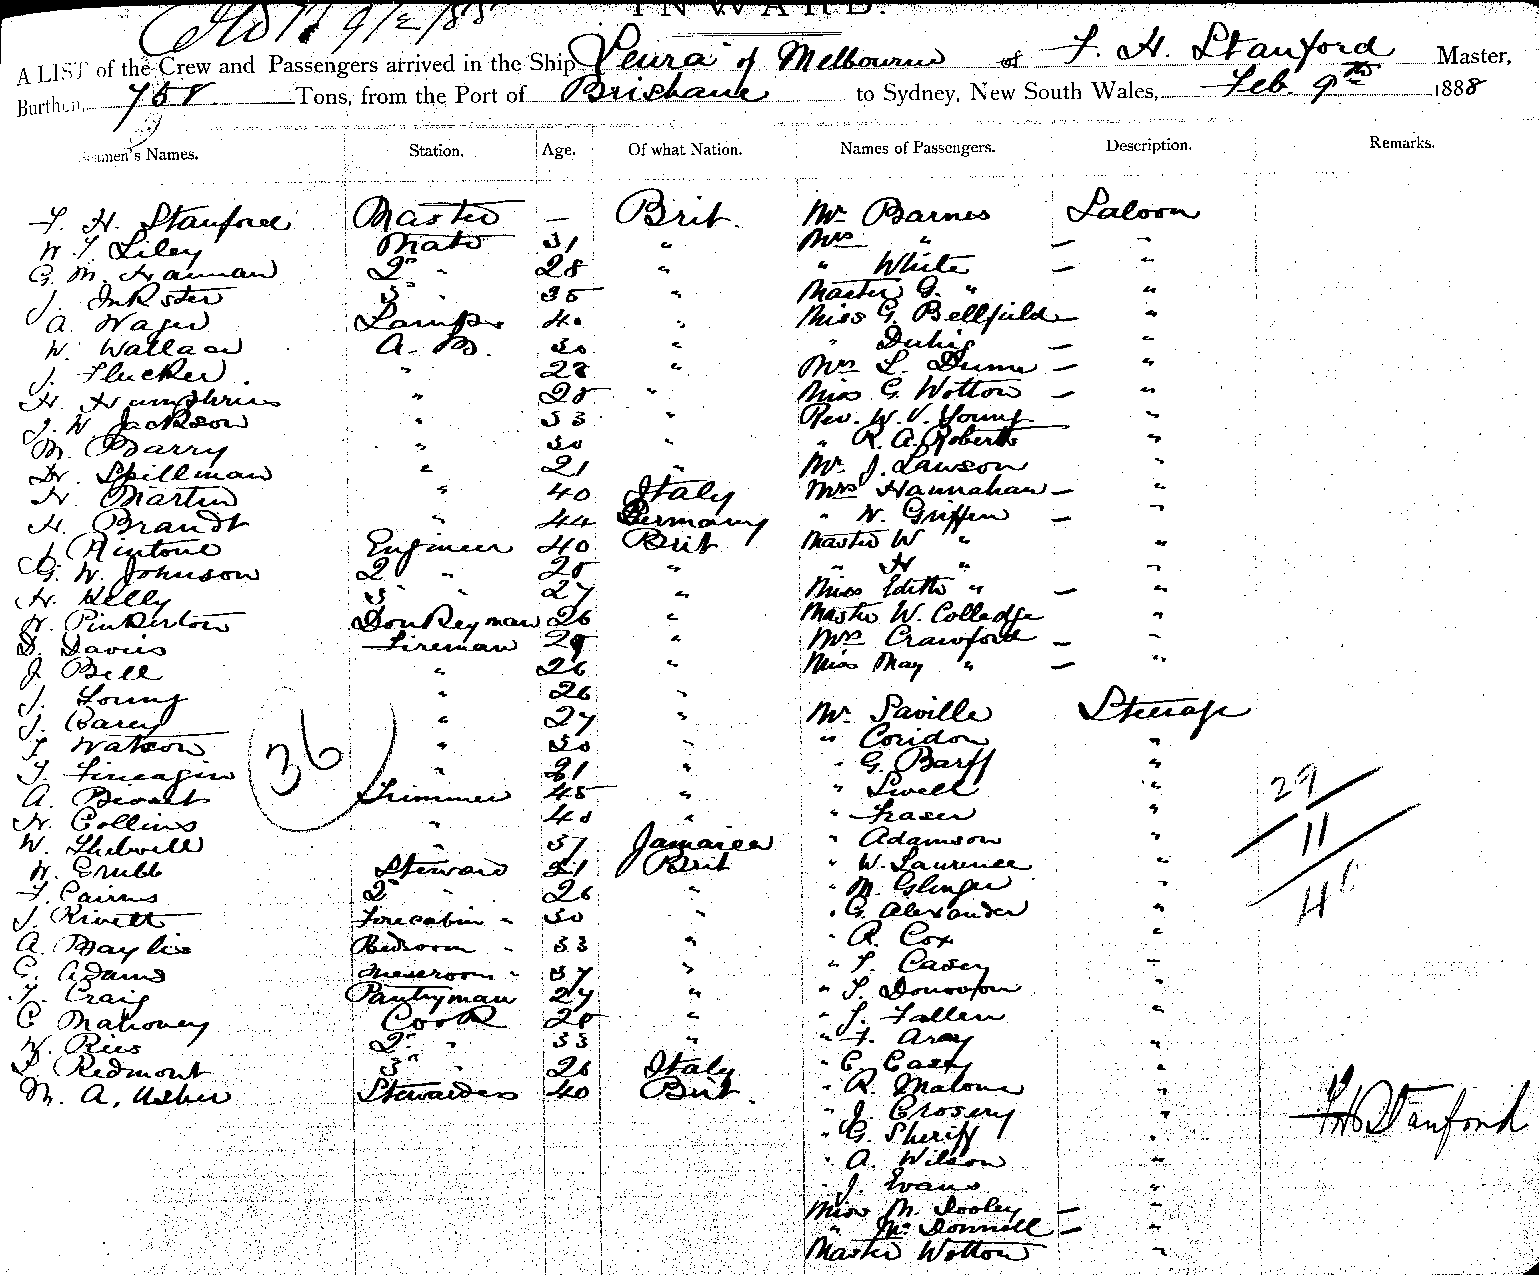 INWARD.
A LIST of the Crew and Passengers arrived in the Ship Leura of Melbourne of F. H. Stanford Master,
Burthen, 758 Tons, from the Port of Brisbane to Sydney, New South Wales, Feb 9th 1888
Seamen's Names. Station. Age. Of what Nation. Names of Passengers. Description. Remarks.
F. H. Stanford Master — Brit. Mr Barnes Saloon
W. T. Liley Mate 31 " Mrs " — "
G. M. Hannan 2nd " 28 " " White — "
J. Inkster 3 " 35 " Master G. " "
A. Wager Lamps 40 " Miss G. Bellfield — "
W. Wallace A. B. 30 " " Duhig — "
J. Flucker " 28 " Mrs L. Dunn — "
H. Humphries " 28 " Miss G. Wotton — "
J. W. Jackson " 33 " Rev. W. V. Young "
M. Barry " 30 " " R. A. Roberts "
H. Spillman " 21 " Mr J. Lawson "
H. Martin " 40 Italy Mrs Hannahan — "
H. Brandt " 44 Germany " W. Griffin — "
J. Rintoul Engineer 40 Brit Master W " "
G. W. Johnson 2 " 28 " " H " "
H. Kelly 3 " 27 " Miss Edith " — "
W. Pinkerton Donkeyman 26 " Master W. Colledge "
D. Davis Fireman 29 " Mrs Crawford — "
J. Bell " 26 " Miss May " — "
J. Young " 26 "
J. Carey " 27 " Mr Saville Steerage
T. Watson " 30 " " Coridon "
T. Fineagin " 31 " " G. Barff "
A. Trimmer 45 " " Swell "
H. Collins " 40 " " Fraser "
W. Thelwell " 37 Jamaica " Adamson "
W. Grubb Steward 31 Brit " W. Laurence "
F. Cairns 2nd " 26 " " M. Glinger "
J. Rivett Forecabin " 30 " " G. Alexander "
A. Baylis Bedroom " 33 " " R. Cox "
G. Adams Messroom " 37 " " T. Casey "
T. Craig Pantryman 27 " " T. Donovan "
C Mahoney Cook 28 " " J. Fallen "
W. Rees 2nd " 33 " " F. Aray "
Redmont 3 " 26 Italy " C. Casey "
M. A. Usher Stewardess 40 Brit. " R. Malone "
" J. Crosery "
" G. Sheriff "
" A. Wilson "
" J. Evans "
Miss M. Dooley — "
" McDonnell — "
Master Wotton "
36
29
11
F H Stanford